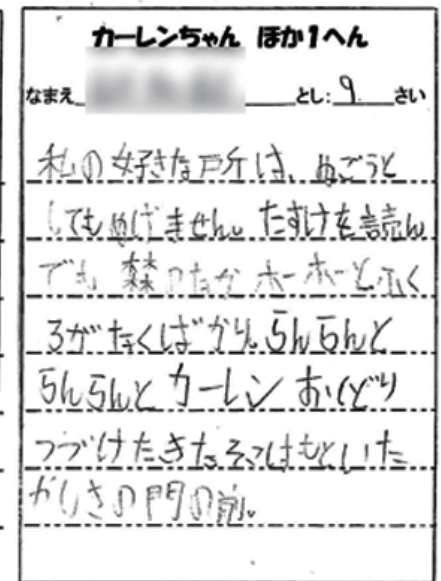 カーレンちゃん ほか1へん
なまえ とし:9 さい
私の好きな所は、ぬごうと
してもぬげません。たすけを読ん
でも 森のなか ホーホーとふく
ろがなくばかり。らんらんと
らんらんと カーレン おどり
つづけたきたそこはもといた
やしきの門の前。